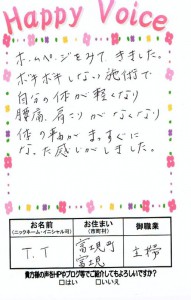 Happy Voice
ホームページをみてきました。
ボキボキしない施術で
自分の体が軽くなり
腰痛、肩こりがなくなり
体の軸がまっすぐに
なった感じがしました。
お名前
(ニックネーム・イニシャル可)
お住まい
(市町村)
御職業
T.T
富見町
富見
主婦
貴方様の声をHPやブログ等でご紹介してもよろしいですか?
□はい □いいえ